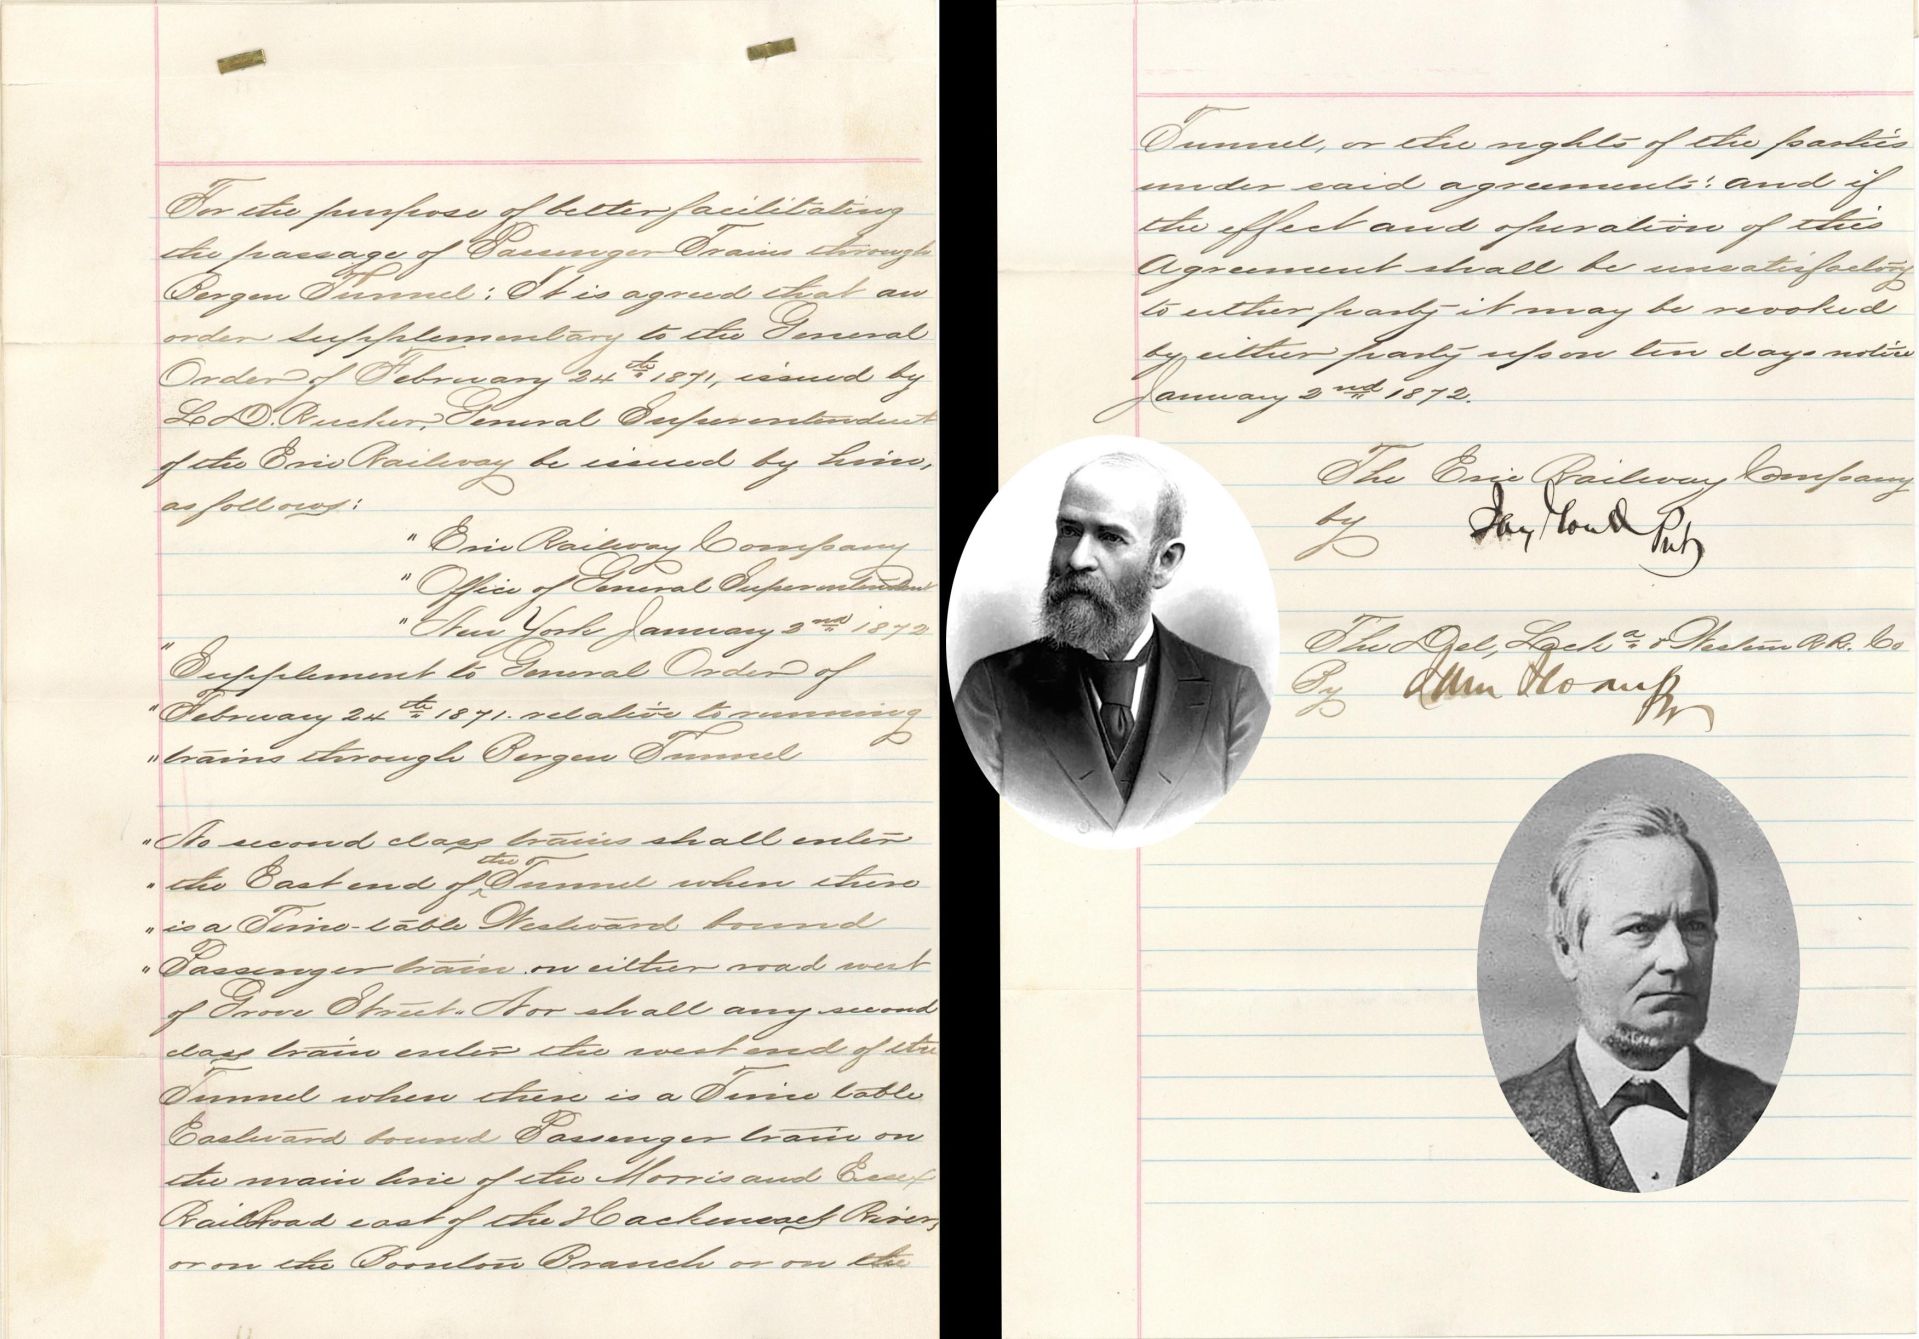 For the purpose of better facilitating
the passage of Passenger Trains through
Bergen Tunnel: It is agreed that an
order supplementary to the General
Order of February 24th 1871, issued by
L. D. Rucher, General Superentendent
of the Erie Railway be issued by him,
as follows:
" Erie Railway Company
" Office of General Superentendent
" New York January 2nd 1872
" Supplement to General Order of
" February 24th 1871. relative to running
" trains through Bergen Tunnel
" No second class trains shall enter
" the East end of the Tunnel when there
" is a Time-table Westward bound
" Passenger train on either road west
of Grove Street. Nor shall any second
class train enter the west end of the
Tunnel when there is a Time table
Eastward bound Passenger train on
the main line of the Morris and Essex
Railroad east of the Hackensack River,
or on the Boonton Branch or on the
Tunnel, or the rights of the parties
under said agreements: and if
the effect and operation of this
Agreement shall be unsatisfactory
to either party it may be revoked
by either party upon ten days notice
January 2nd 1872.
The Erie Railway Company
by Jay Gould Prest
The Del, Lacka & Western R.R. Co
By Sam Sloan Pr